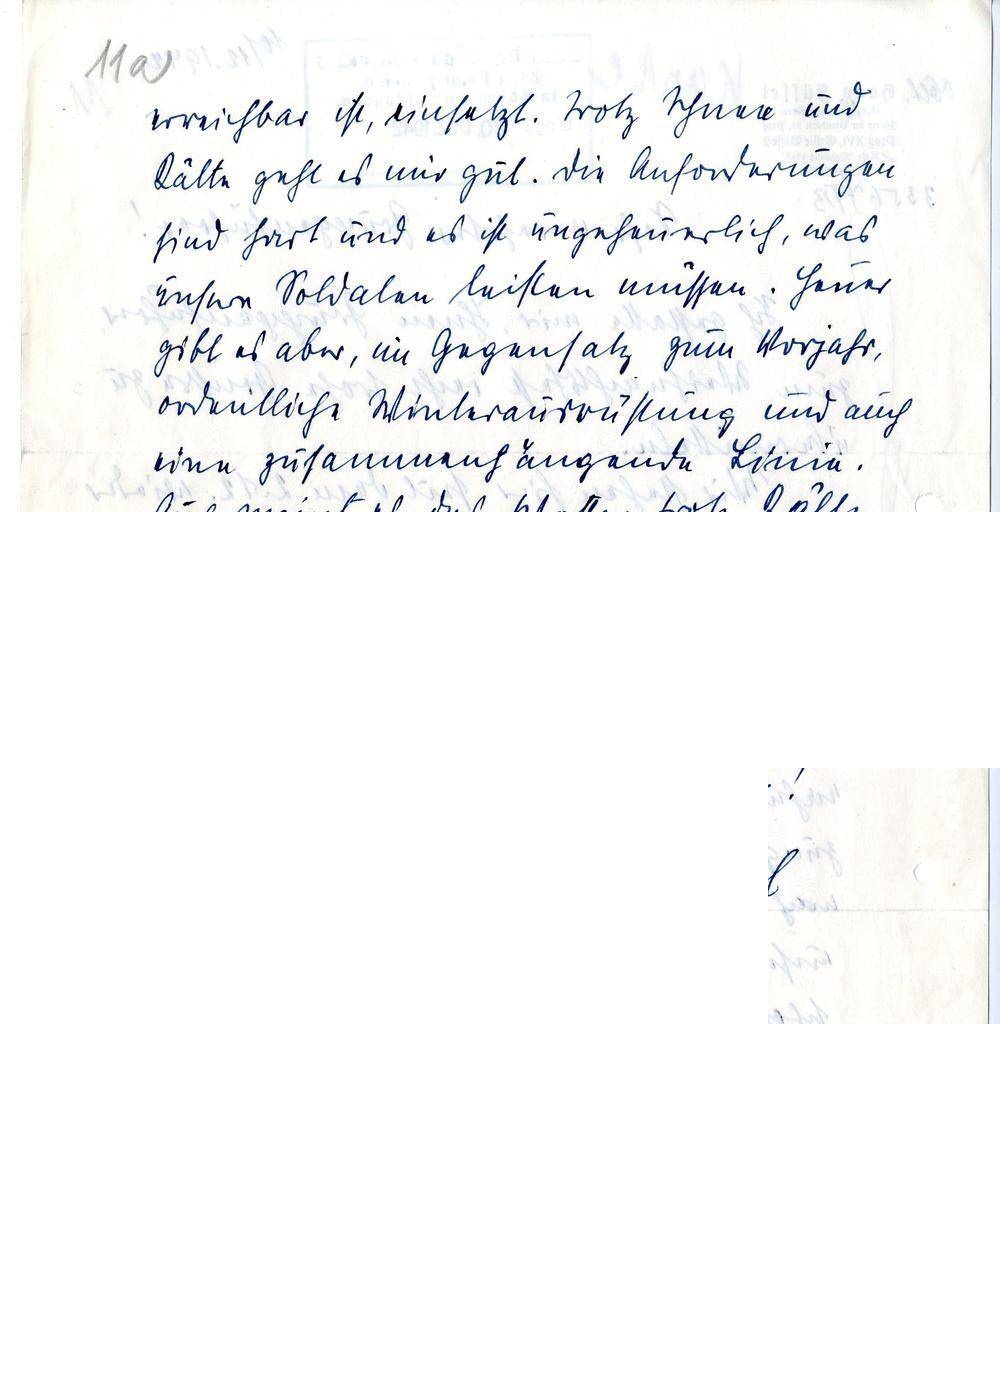 11a
erreichbar ist, einsetzt. Trotz Schnee und
Kälte geht es mir gut. Die Anforderungen
sind hart und es ist ungeheuerlich, was
unsere Soldaten leisten müssen. Heuer
gibt es aber, im Gegensatz zum Vorjahr,
ordentliche Winterausrüstung und auch
eine zusammenhängende Linie.